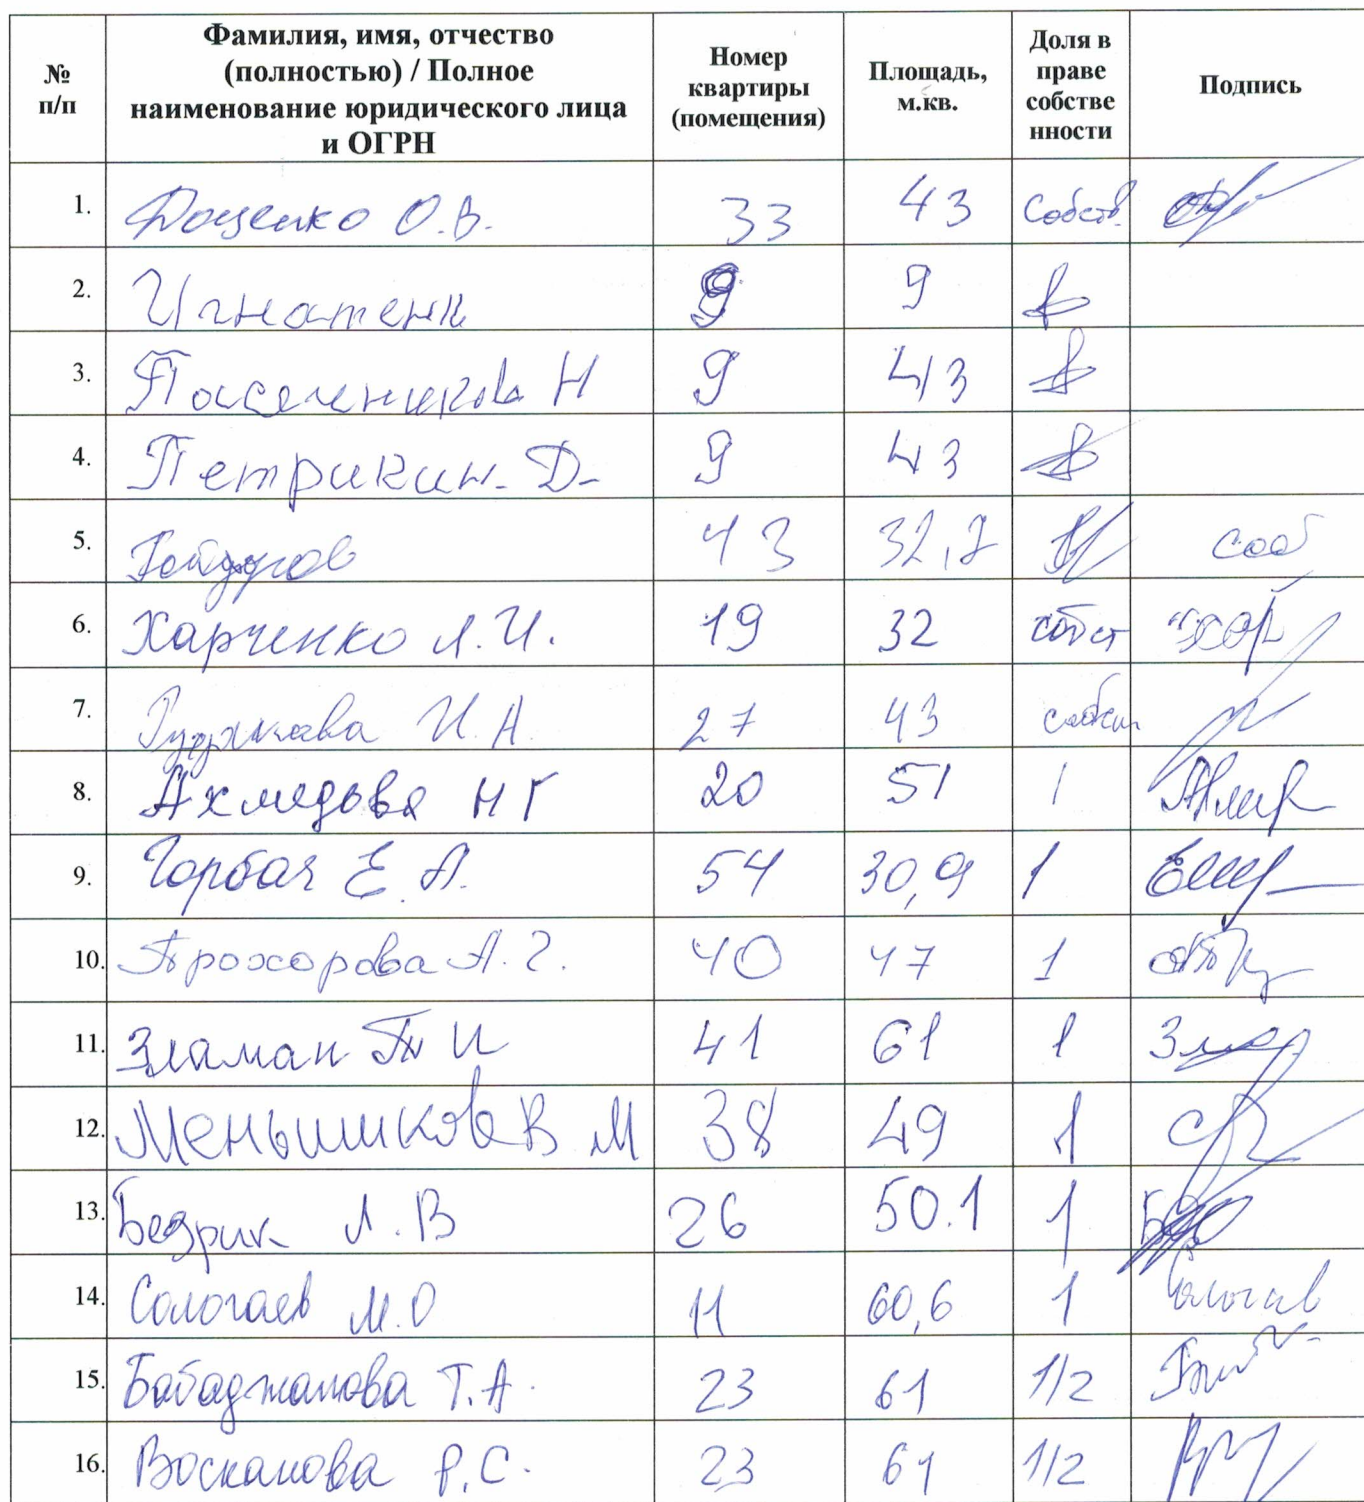 № п/п Фамилия, имя, отчество (полностью) / Полное наименование юридического лица и ОГРН Номер квартиры (помещения) Площадь, м.кв. Доля в праве собстве нности Подпись
1. Доценко О.В. 33 43 собств.
2. Игнатенк 9 9
3. Пасечникова Н 9 43
4. Петрикин Д- 9 43
5. 43 32,7 соб
6. Харченко Л.И. 19 32 собст
7. И.А. 27 43 собств
8. Ахмедова Н Г 20 51 1
9. Горбач Е.А. 54 30,9 1
10. Прохорова А.Г. 40 47 1
11. Зламан Т И 41 61 1
12. Меньшикова В М 38 49 1
13. Бедрик Л.В 26 50.1 1
14. Сологаев М.О 11 60,6 1
15. Бабаджанова Т.А. 23 61 1/2
16. Восканова Р.С. 23 61 1/2